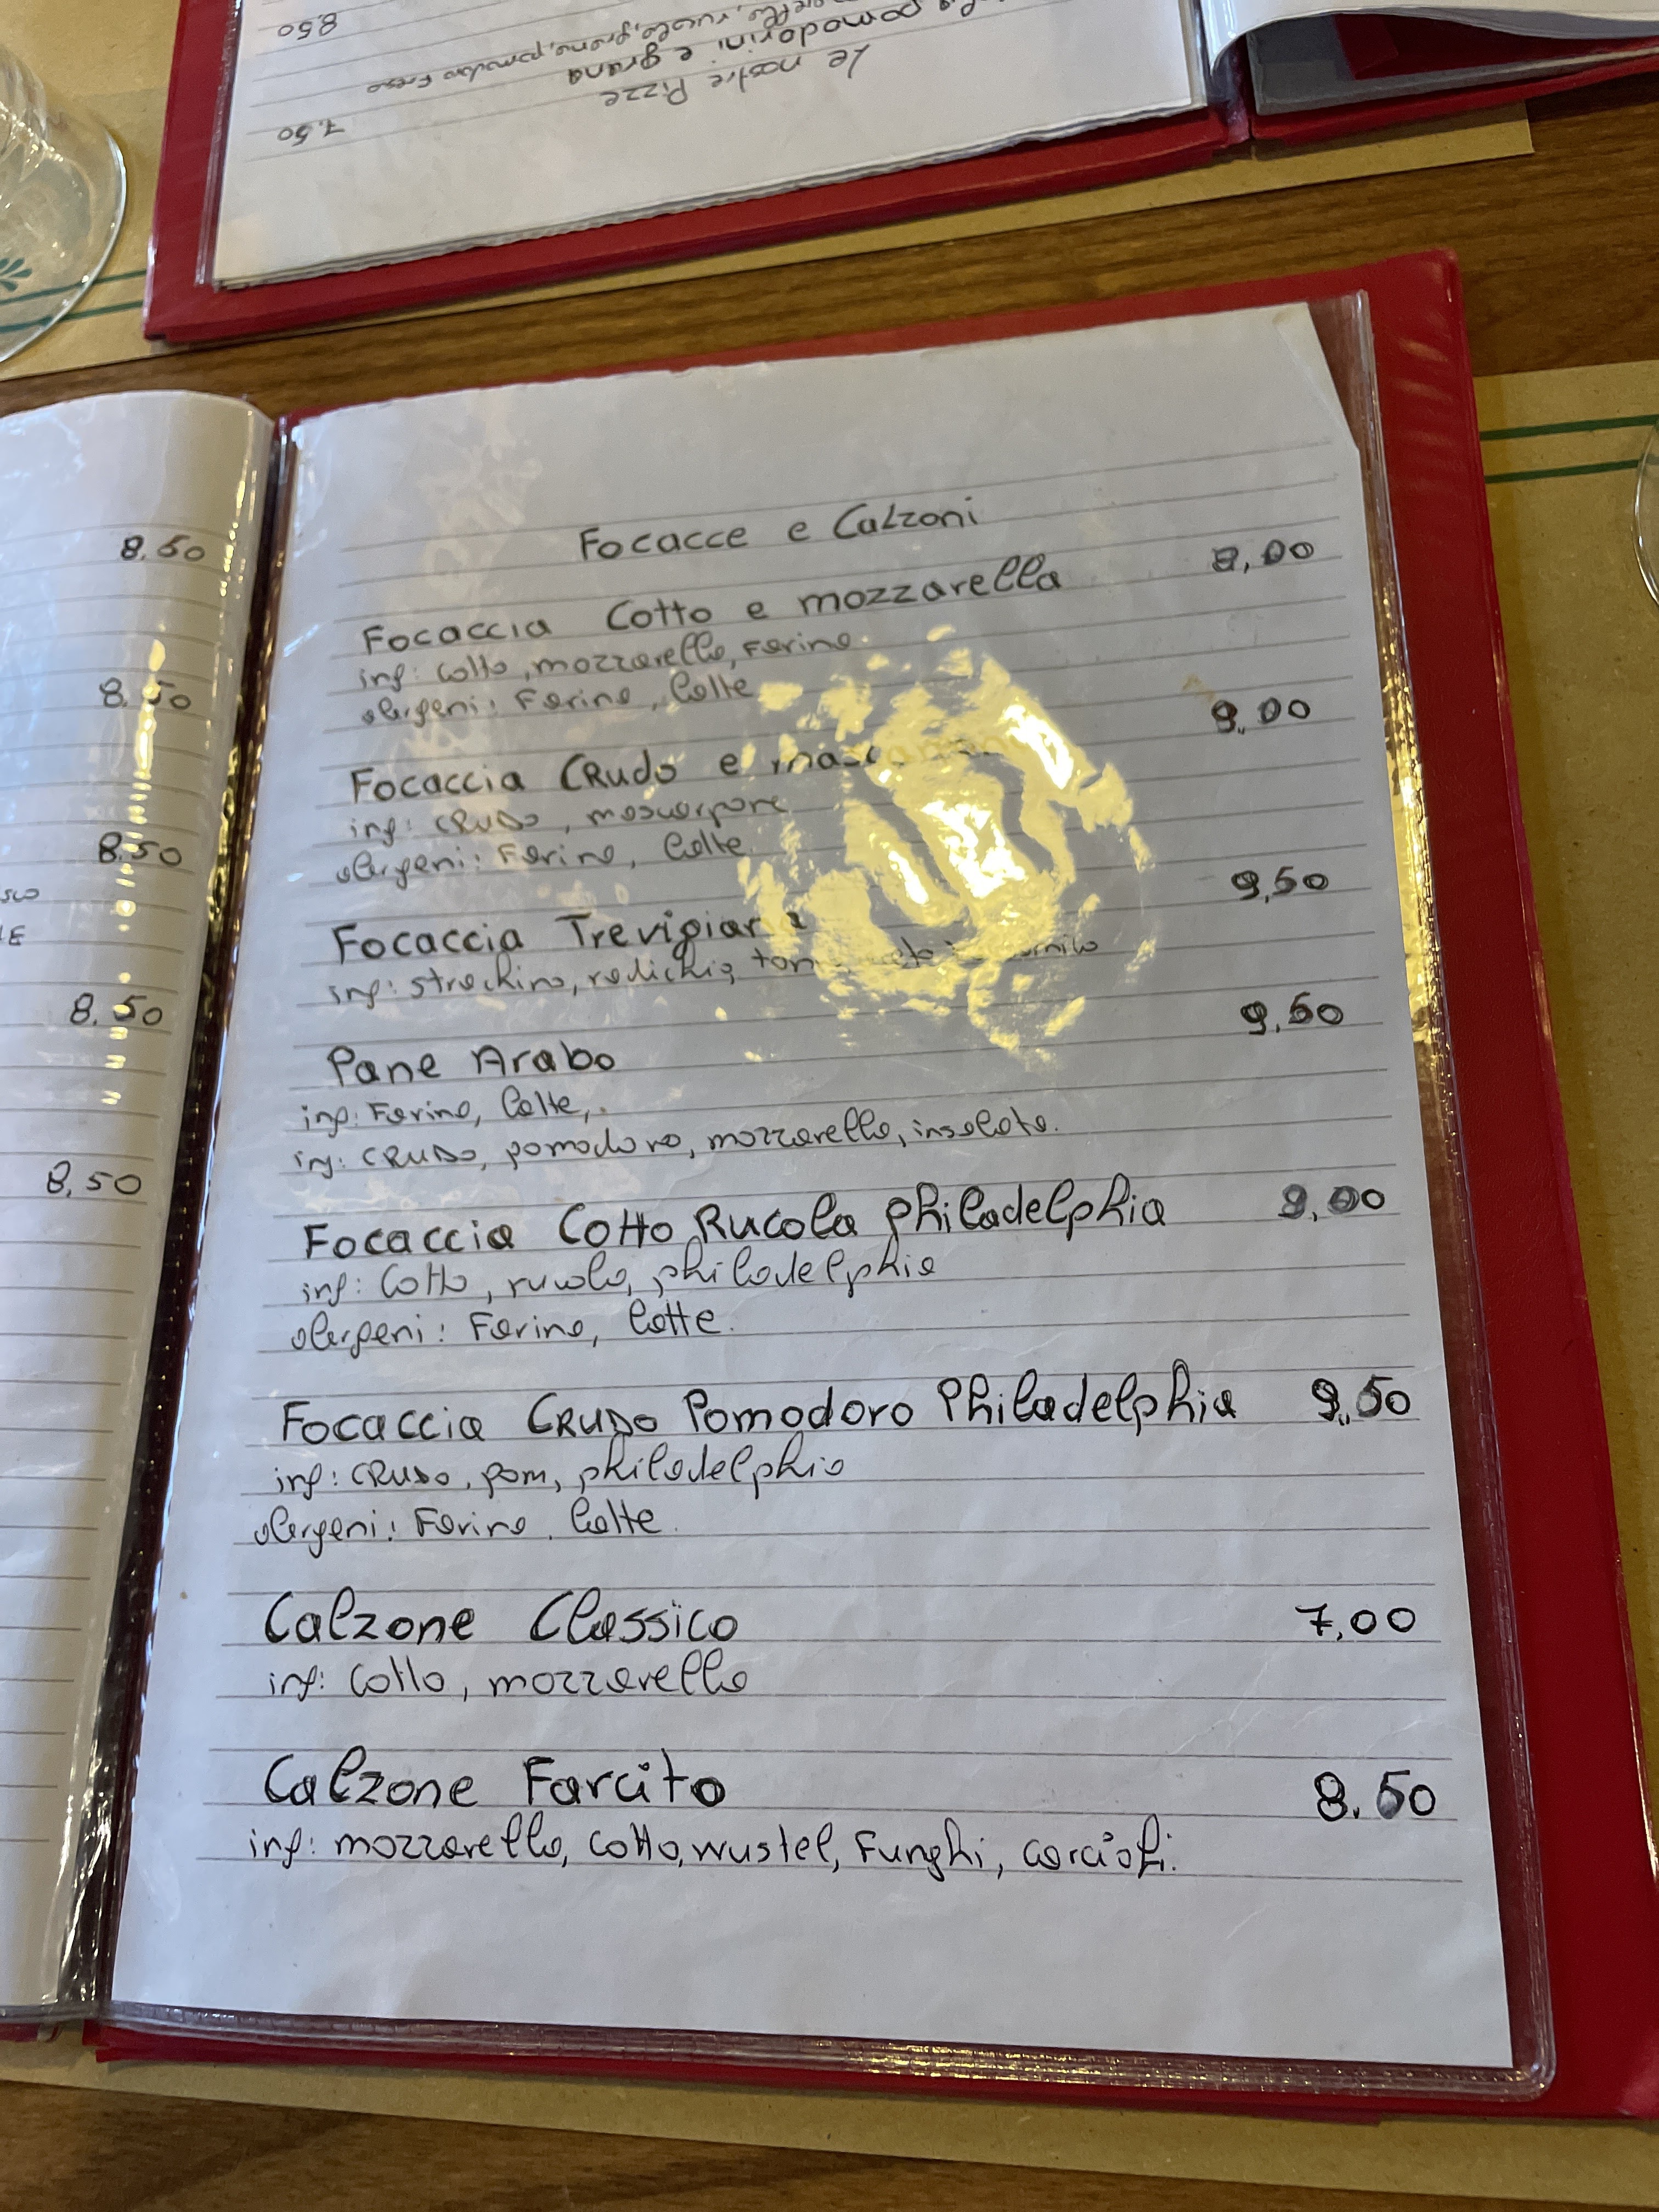 Le nostre Pizze
pomodorini e grana 7.50
rucola, grana, pomodoro fresco
8.50
8.50
8.50
8.50
8.50
8,50
Focacce e Calzoni
Focaccia Cotto e mozzarella 8,00
ing: cotto, mozzarella, Farina.
allergeni: Farina, latte
Focaccia CRudo e 9.00
ing: CRUDO, mascarpone
allergeni: Farina, latte.
Focaccia Trevigiana 9,50
ing: strachino, radichio,
Pane Arabo 9.50
ing: Farina, latte,.
ing: CRUDO, pomodoro, mozzarella, insalata.
Focaccia Cotto Rucola philadelphia 9,00
ing: Cotto, rucola, philadelphia
allergeni: Farina, latte.
Focaccia CRUDO Pomodoro Philadelphia 9.50
ing: CRUDO, pom, philadelphia
allergeni: Farina, latte.
Calzone Classico 7,00
ing: Cotto, mozzarella
Calzone Farcito 8.50
ing: mozzarella, cotto, wustel, Funghi, carciofi.